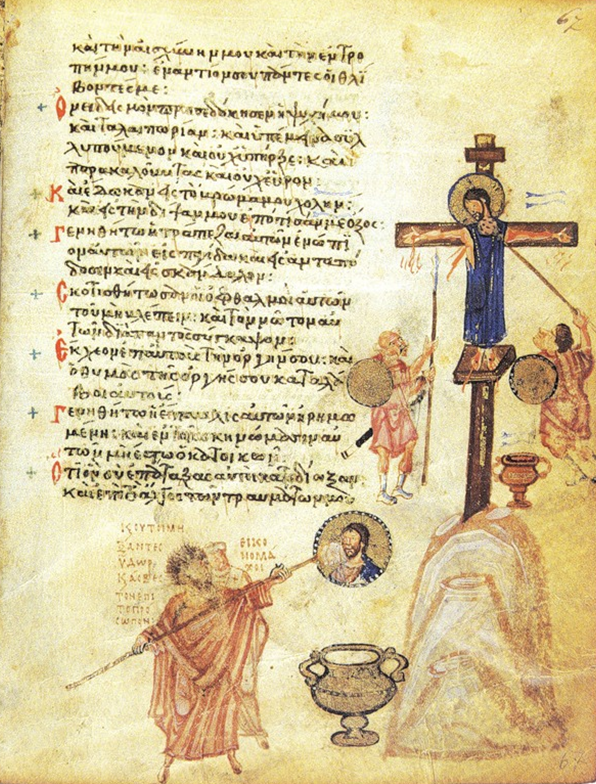 67
καὶ τὴν αἰσχύνην μου καὶ τὴν ἐντρο
πήν μου· ἐναντίον σου πάντες οἱ θλί
βοντές με:
Ὀνειδισμὸν προσεδόκησεν ἡ ψυχή μου·
καὶ ταλαιπωρίαν· καὶ ὑπέμεινα συλ
λυπούμενον καὶ οὐχ ὑπῆρξε· καὶ
παρακαλοῦντας καὶ οὐχ εὗρον:
Καὶ ἔδωκαν εἰς τὸ βρῶμά μου χολήν·
καὶ εἰς τὴν δίψαν μου ἐπότισάν με ὄξος:
Γενηθήτω ἡ τράπεζα αὐτῶν ἐνώπι
ον αὐτῶν εἰς παγίδα καὶ εἰς ἀνταπό
δοσιν καὶ εἰς σκάνδαλον:
Σκοτισθήτωσαν οἱ ὀφθαλμοὶ αὐτῶν
τοῦ μὴ βλέπειν· καὶ τὸν νῶτον αὐ
τῶν διὰ παντὸς σύγκαμψον:
Ἔκχεον ἐπ' αὐτοὺς τὴν ὀργήν σου· καὶ
ὁ θυμὸς τῆς ὀργῆς σου καταλά
βοι αὐτούς:
Γενηθήτω ἡ ἔπαυλις αὐτῶν ἠρημω
μένη· καὶ ἐν τοῖς σκηνώμασιν αὐ
τῶν μὴ ἔστω ὁ κατοικῶν:
Ὅτι ὃν σὺ ἐπάταξας αὐτοὶ κατεδίωξαν·
καὶ ἐπὶ τὸ ἄλγος τῶν τραυμάτων μου
ΥΔΩΡ
ΤΟΝ ΕΠΙ
ΤΟ ΠΡΟ
ΣΩΠΟΝ
ΕΙΚΟ
ΝΟΜΑ
ΧΟΙ
67